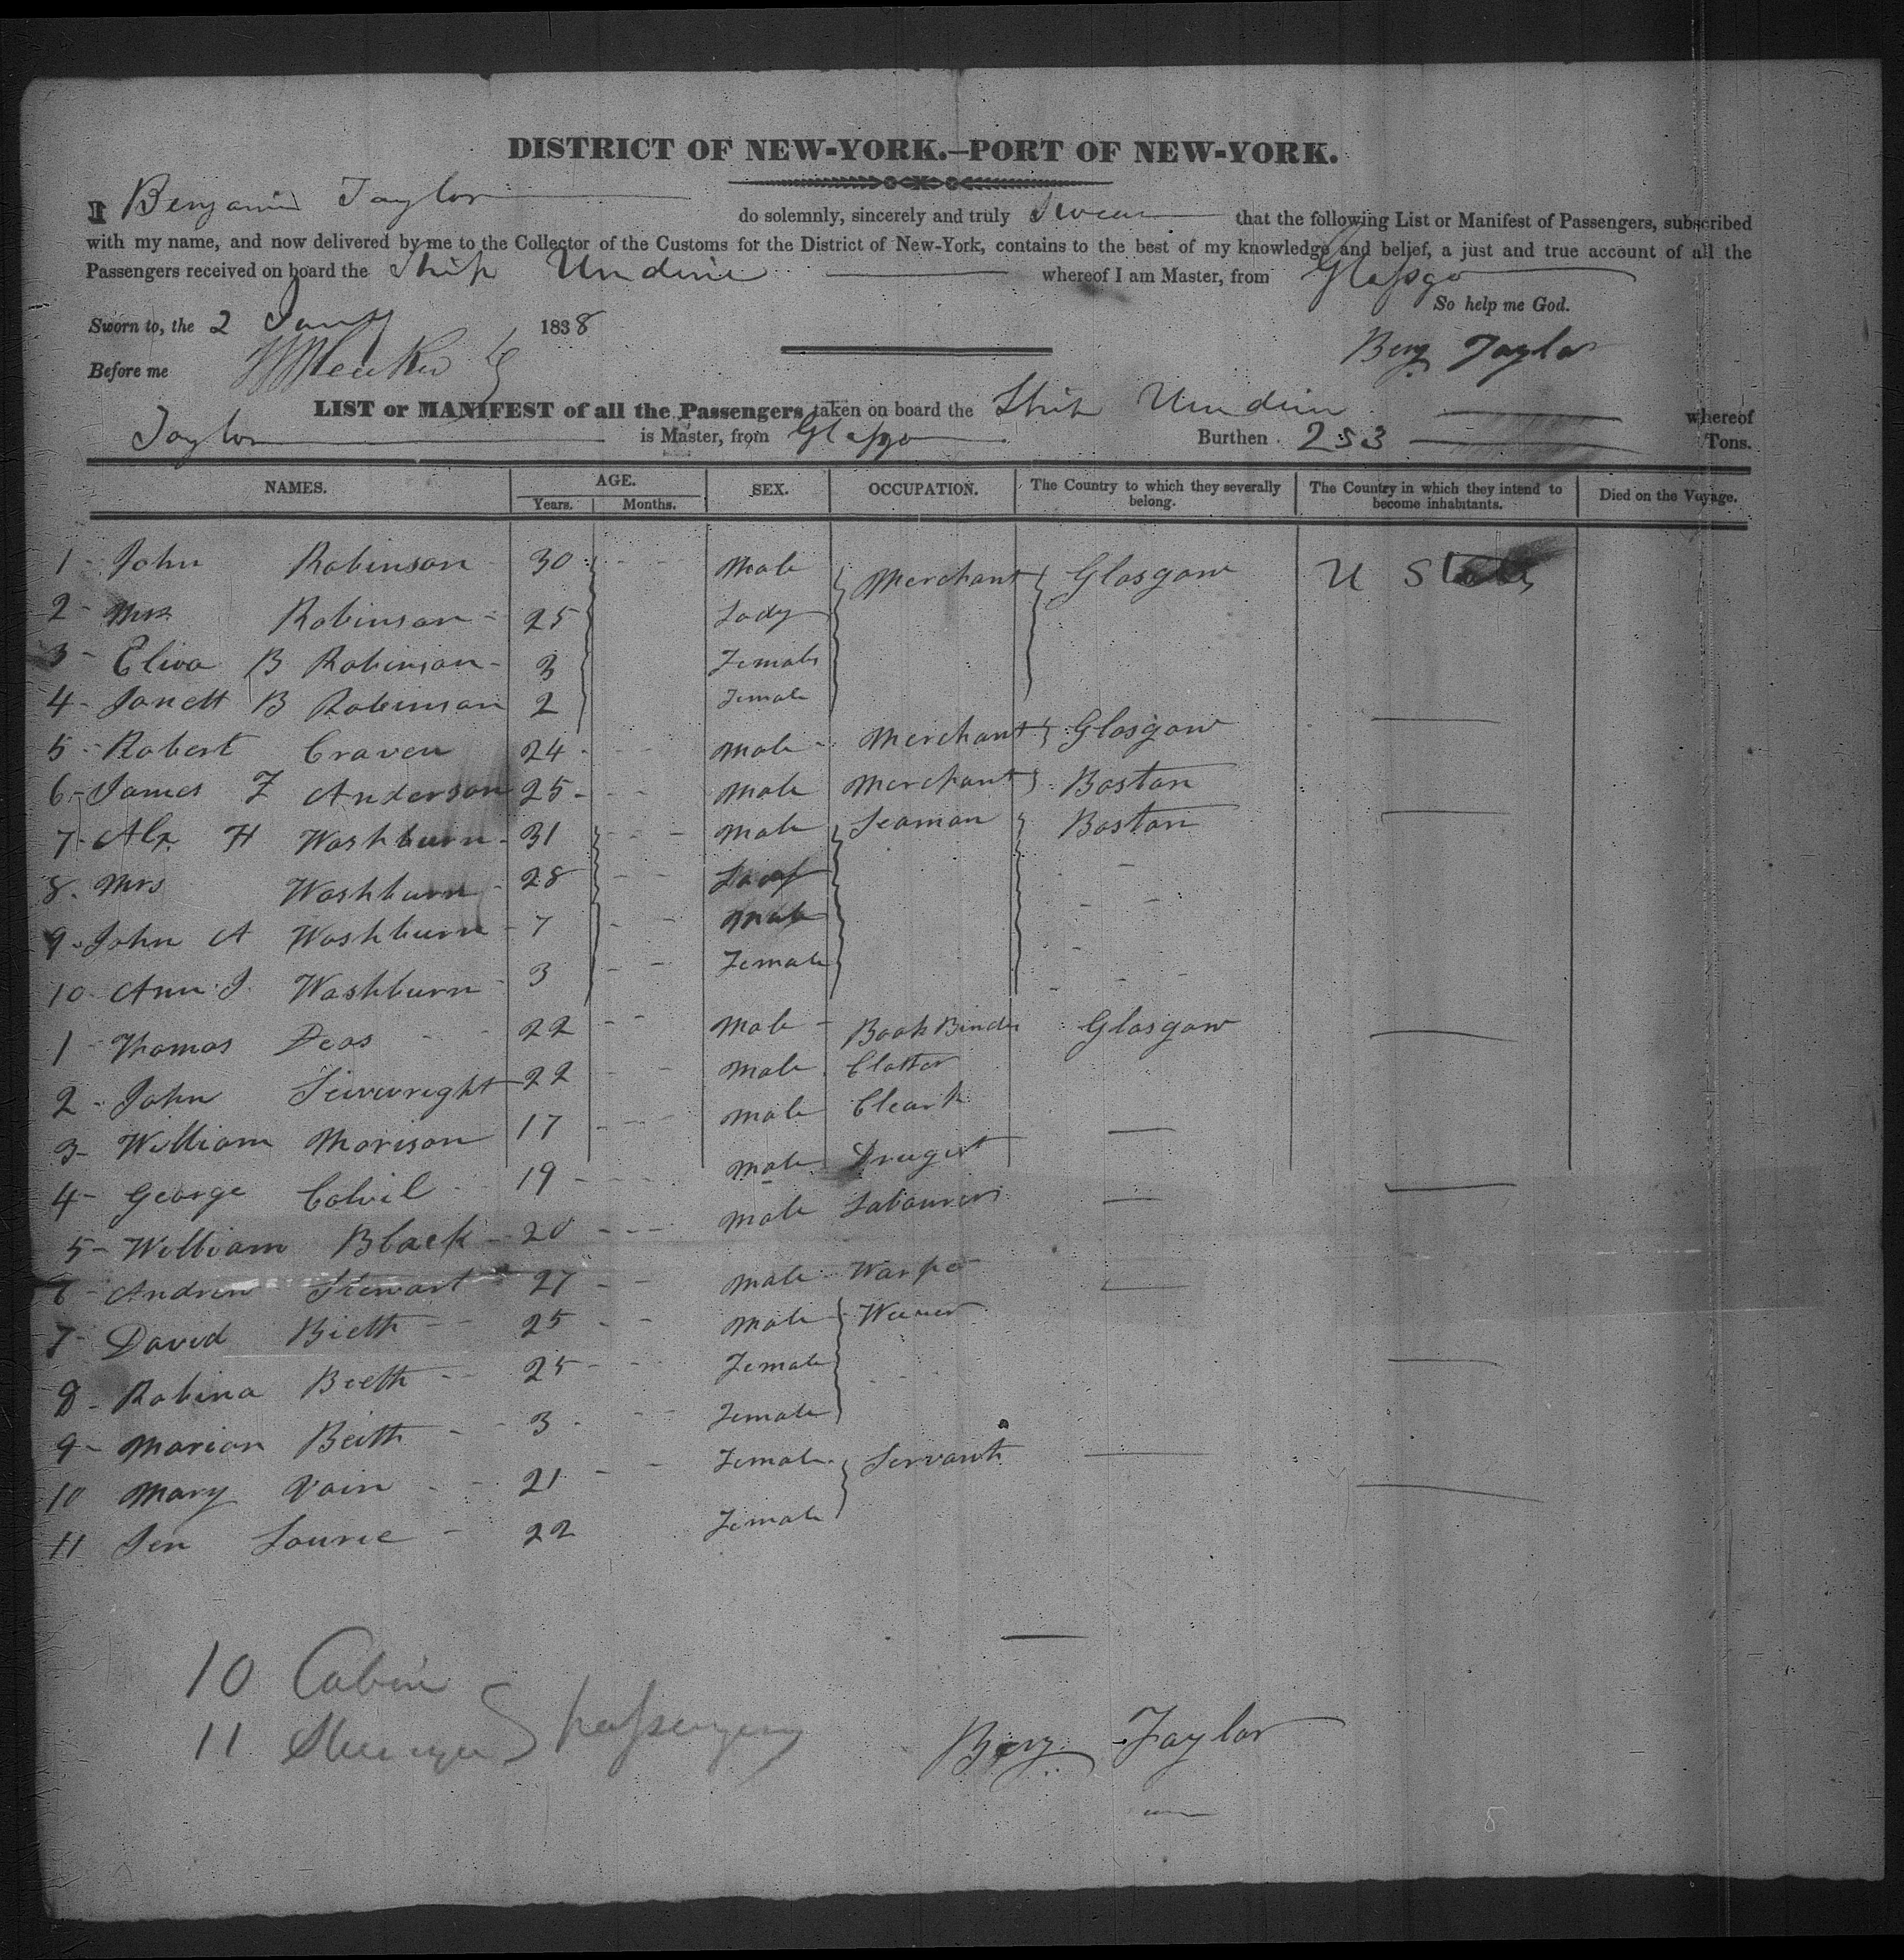 DISTRICT OF NEW-YORK.—PORT OF NEW-YORK.
I Benjamin Taylor do solemnly, sincerely and truly Swear that the following List or Manifest of Passengers, subscribed
with my name, and now delivered by me to the Collector of the Customs for the District of New-York, contains to the best of my knowledge and belief, a just and true account of all the
Passengers received on board the Ship Undine whereof I am Master, from Glasgo
So help me God.
Sworn to, the 2 Jany 1838
Benj Taylor
Before me
LIST or MANIFEST of all the Passengers taken on board the Ship Undine whereof
Taylor is Master, from Glasgo Burthen 253 Tons.
NAMES. AGE. SEX. OCCUPATION. The Country to which they severally belong. The Country in which they intend to become inhabitants. Died on the Voyage.
Years. Months.
1 - John Robinson 30 Male Merchant Glasgow U States
2 - Mrs Robinson - 25 Lady
3 - Eliva B Robinson - 3 Female
4 - Janett B Robinson 2 Female
5 - Robert Craven 24 Male Merchant Glasgow
6 - James F Anderson 25 Male Merchant Boston
7 - Alx H Washburn - 31 Male Seaman Boston
8 - Mrs Washburn - 28 Lady
9 - John A Washburn - 7 Male
10 - Ann J. Washburn 3 Female
1 - Thomas Deas 22 Male - Book Binder Glasgow
2 - John Sievwright 22 Male Clatter
3 - William Morison 17 Male Cleark
4 - George Colvil 19 Male Drugist
5 - William Black - 20 Male Labourer
6 - Andrew Stewart 27 Male Warper
7 - David Bieth 25 Male Weaver
8 - Robina Bieth 25 Female
9 - Marian Beith 3 Female
10 Mary Vain 21 Female Servants
11 Jen Lourie 22 Female
10 Cabin
11 Steerage } passengers
Benj Taylor